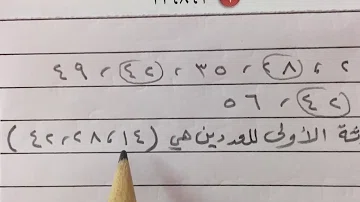 ٢ ، (٢٨) ، ٣٥ ، (٤٢) ، ٤٩
(٤٢) ، ٥٦
الأولى للعددين هي (١٤ ، ٢٨ ، ٤٢)